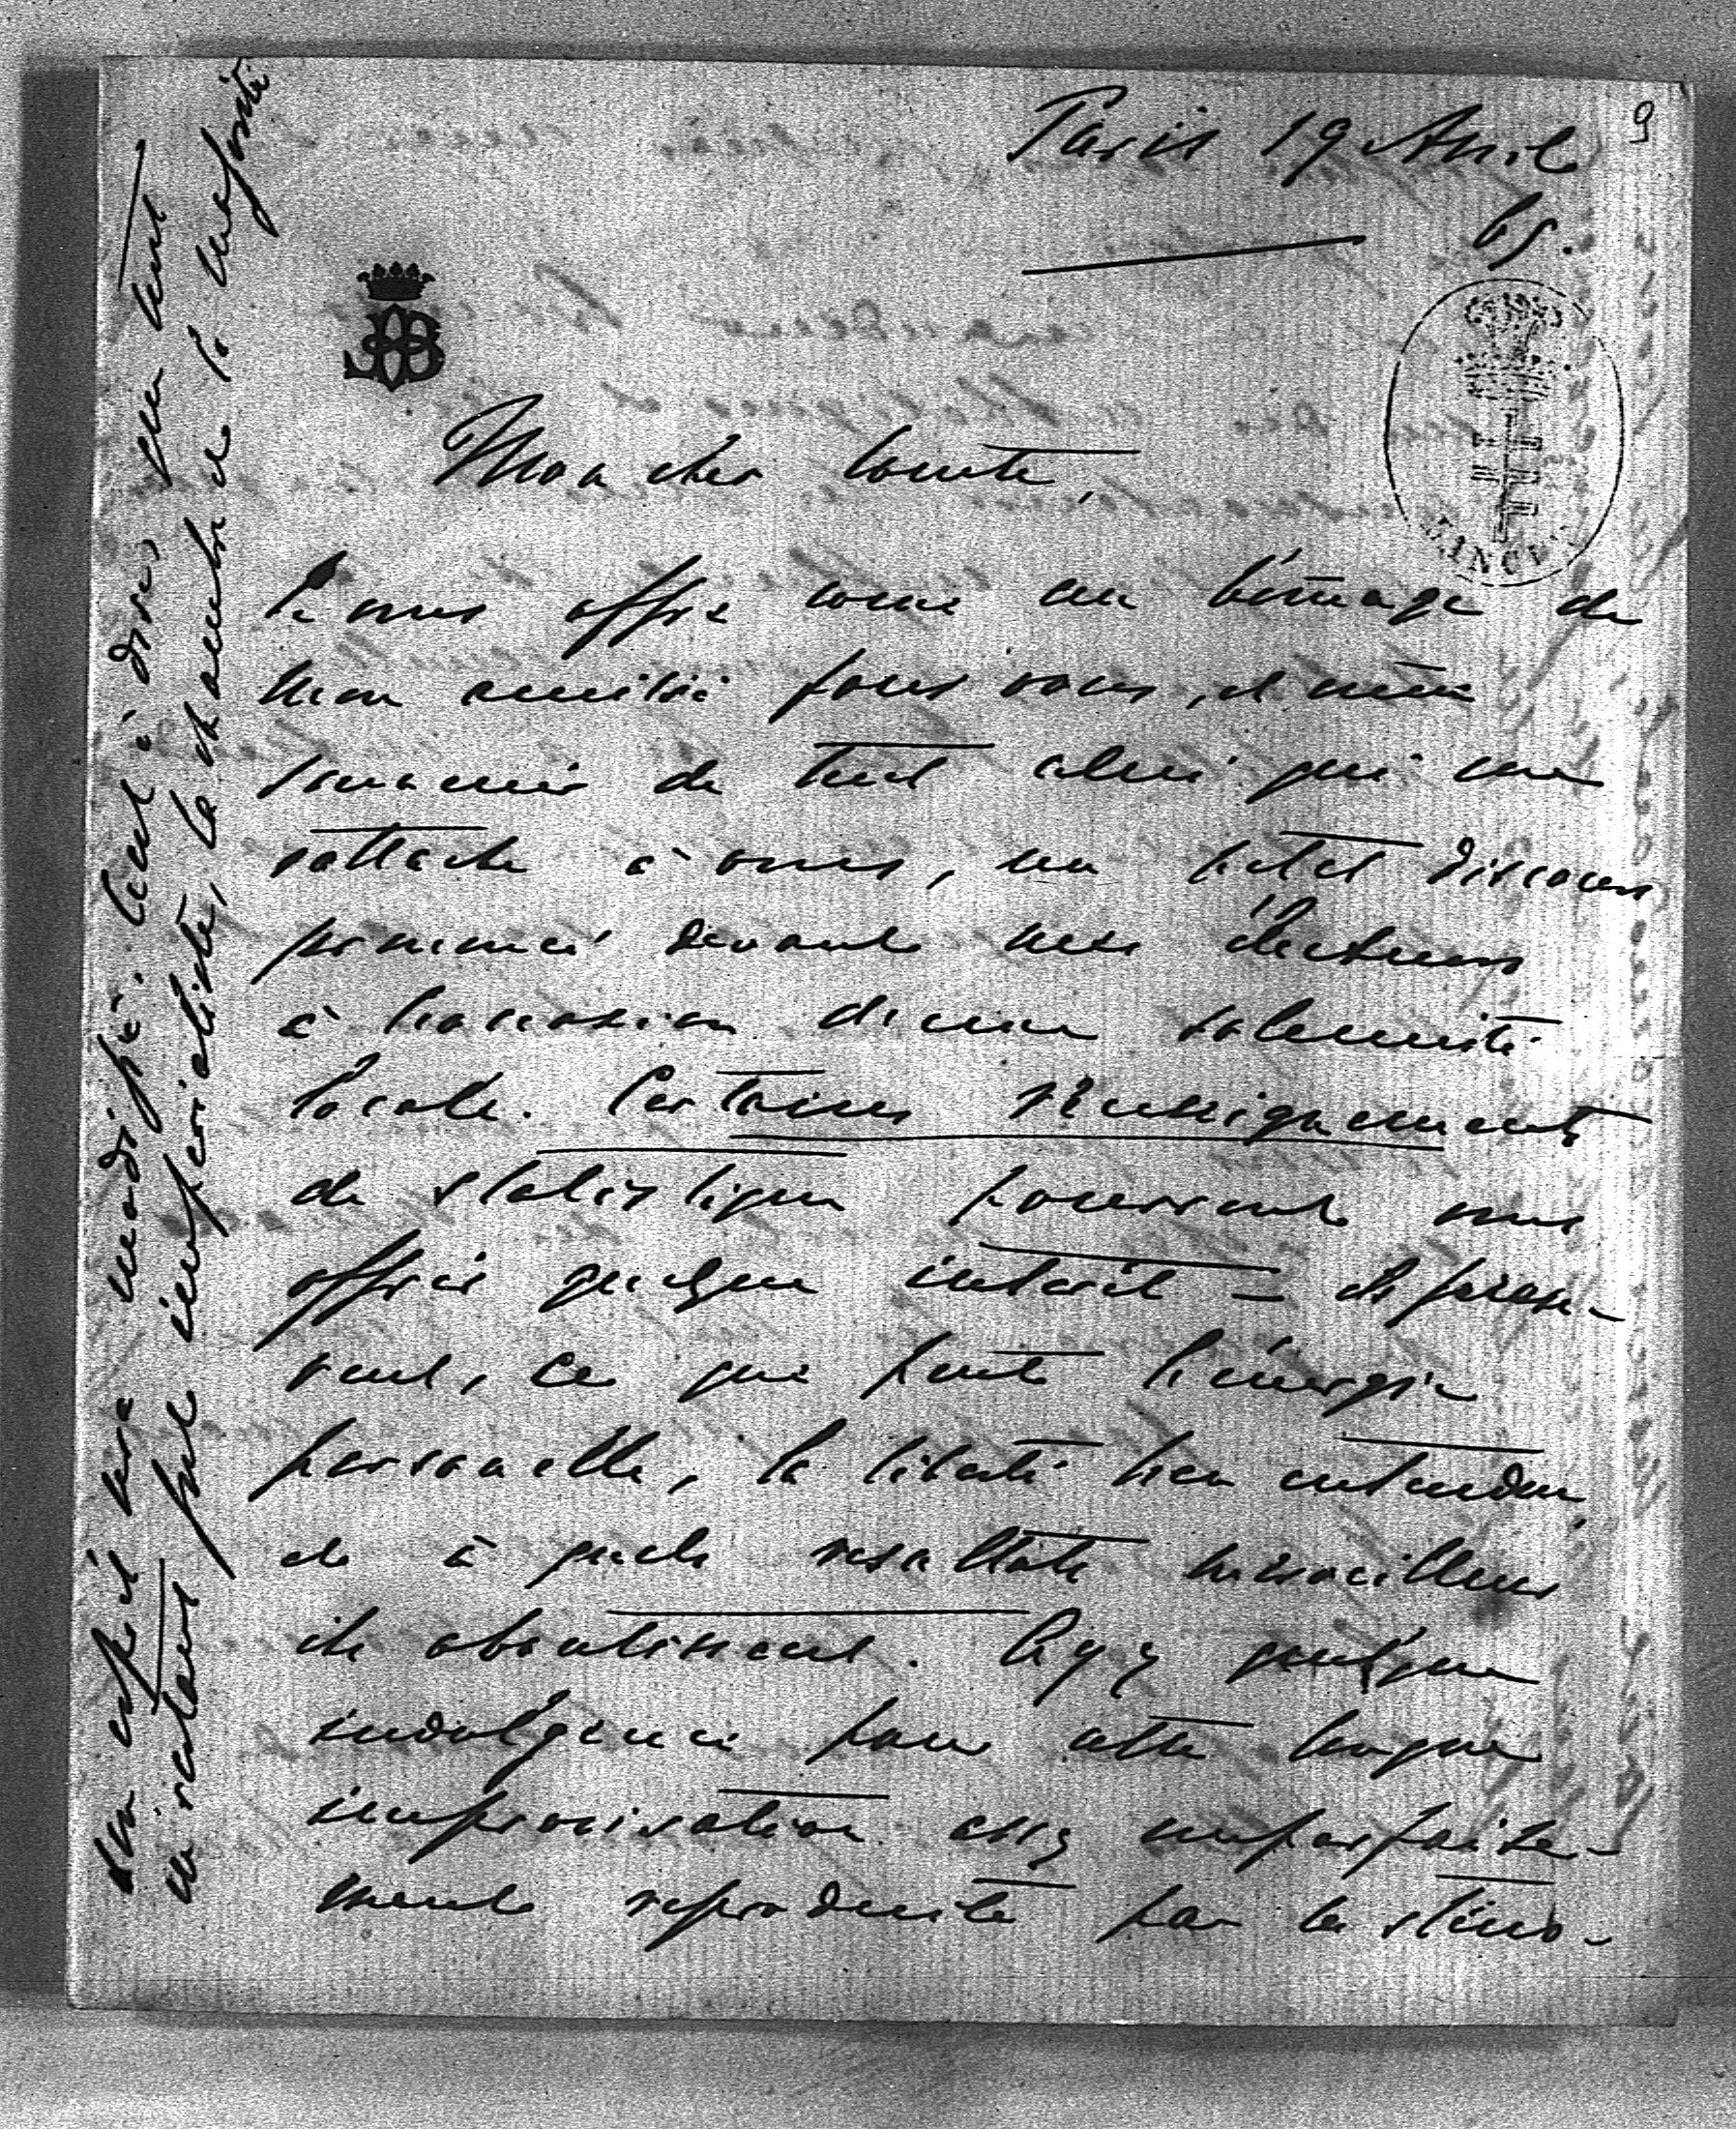 9
Paris 19 Avril
65.
Mon cher Comte,
Je vous offre come un hõmage de
mon amitié pour vous, et même
souvenir de tout celui qui me
rattache à vous, un petit discours
prononcé devant mes électeurs
à l'occasion d'une solennité
locale. Certains renseignements
de statistique pourront vous
offrir quelque intérêt – et prou-
vent, ce que peut l'énergie
personnelle, la liberté bien entendue,
et à quels resultats merveilleux
ils aboutissent. Ayez quelque
indulgence pour cette longue
improvisation assez imparfaite-
ment reproduite par la sténo-
esprit sera modifié. C'est à dire,
un instant sul imperialiste, la chambre de la